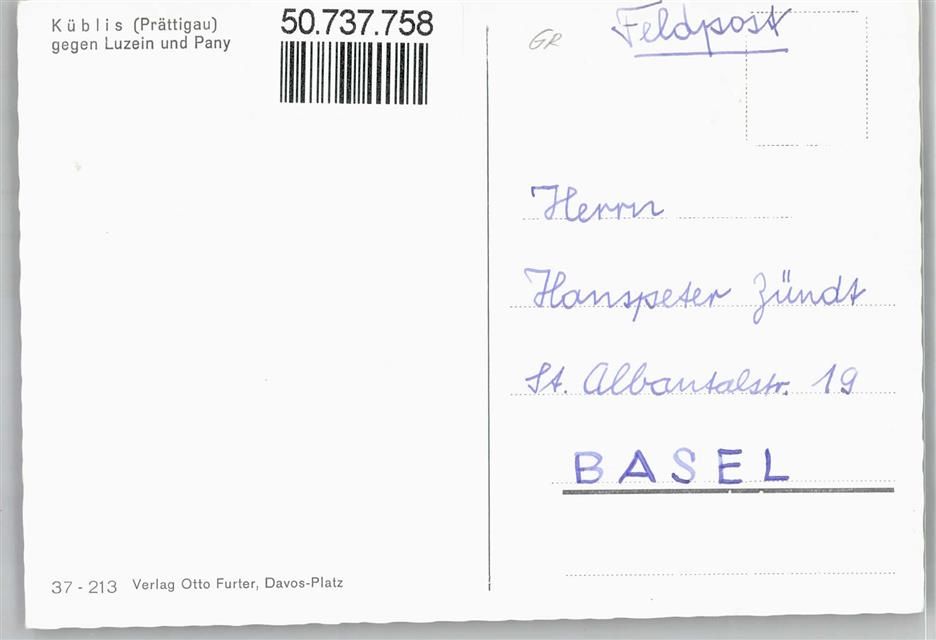 Küblis (Prättigau)
gegen Luzein und Pany
50.737.758
GR
Feldpost
Herrn
Hanspeter Zündt
St. Albantalstr. 19
BASEL
37 - 213 Verlag Otto Furter, Davos-Platz